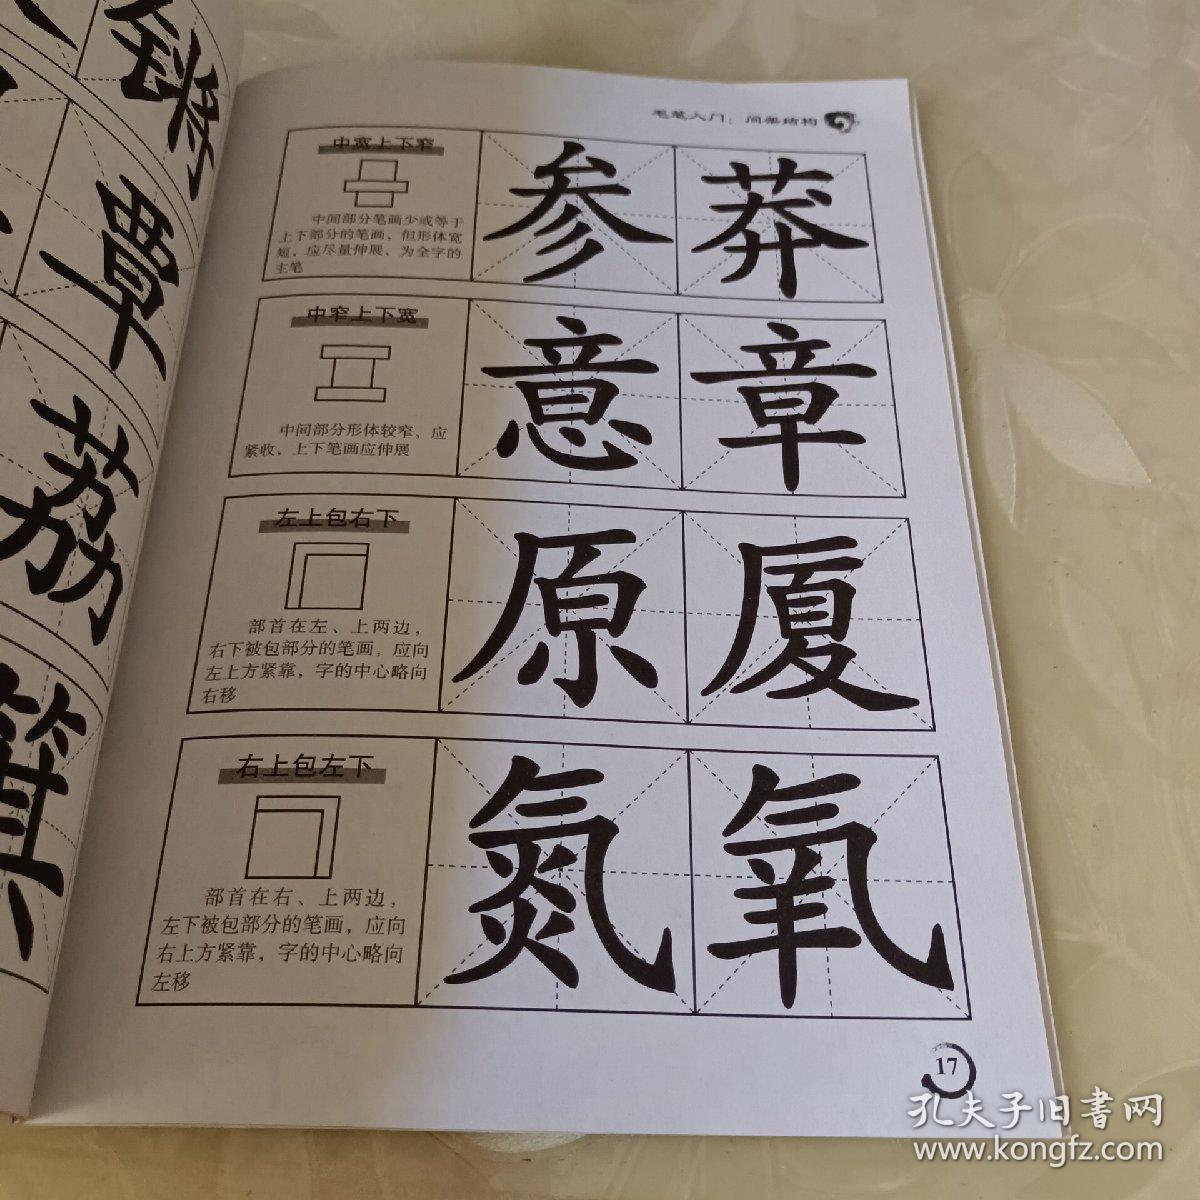 锵
覃
荔
箕
毛笔入门：间架结构
中宽上下窄
中间部分笔画少或等于
上下部分的笔画，但形体宽
短，应尽量伸展，为全字的
主笔
参 莽
中窄上下宽
中间部分形体较窄，应
紧收，上下笔画应伸展
意 章
左上包右下
部首在左、上两边，
右下被包部分的笔画，应向
左上方紧靠，字的中心略向
右移
原 厦
右上包左下
部首在右、上两边，
左下被包部分的笔画，应向
右上方紧靠，字的中心略向
左移
氮 氧
17
孔夫子旧書网
www.kongfz.com